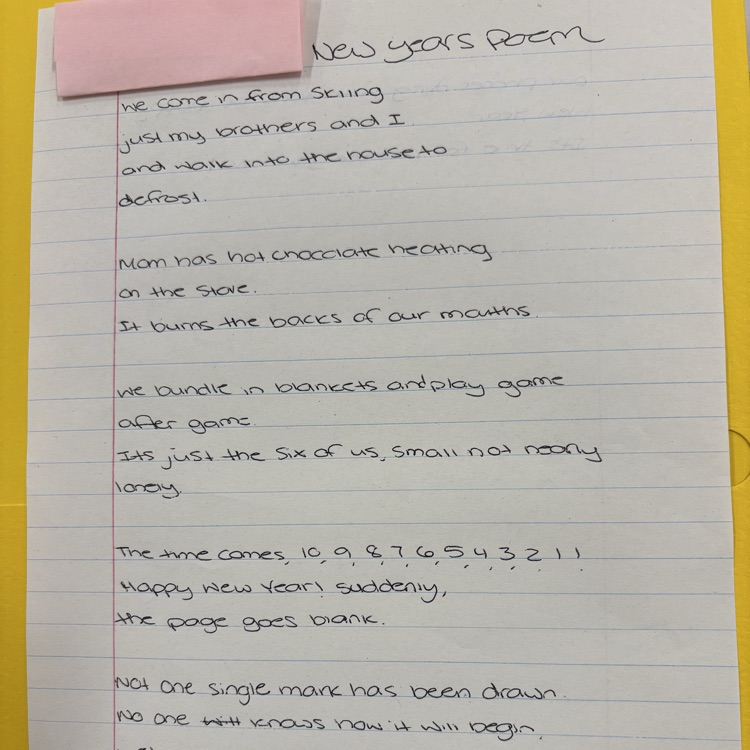 New years Poem
We come in from skiing
just my brothers and I
and walk into the house to
defrost.
Mom has hot chocolate heating
on the stove.
It burns the backs of our mouths.
We bundle in blankets and play game
after game.
Its just the six of us, small not nearly
lonely.
The time comes, 10, 9, 8, 7, 6, 5, 4, 3, 2, 1!
Happy New Year! suddenly,
the page goes blank.
Not one single mark has been drawn.
No one knows how it will begin.